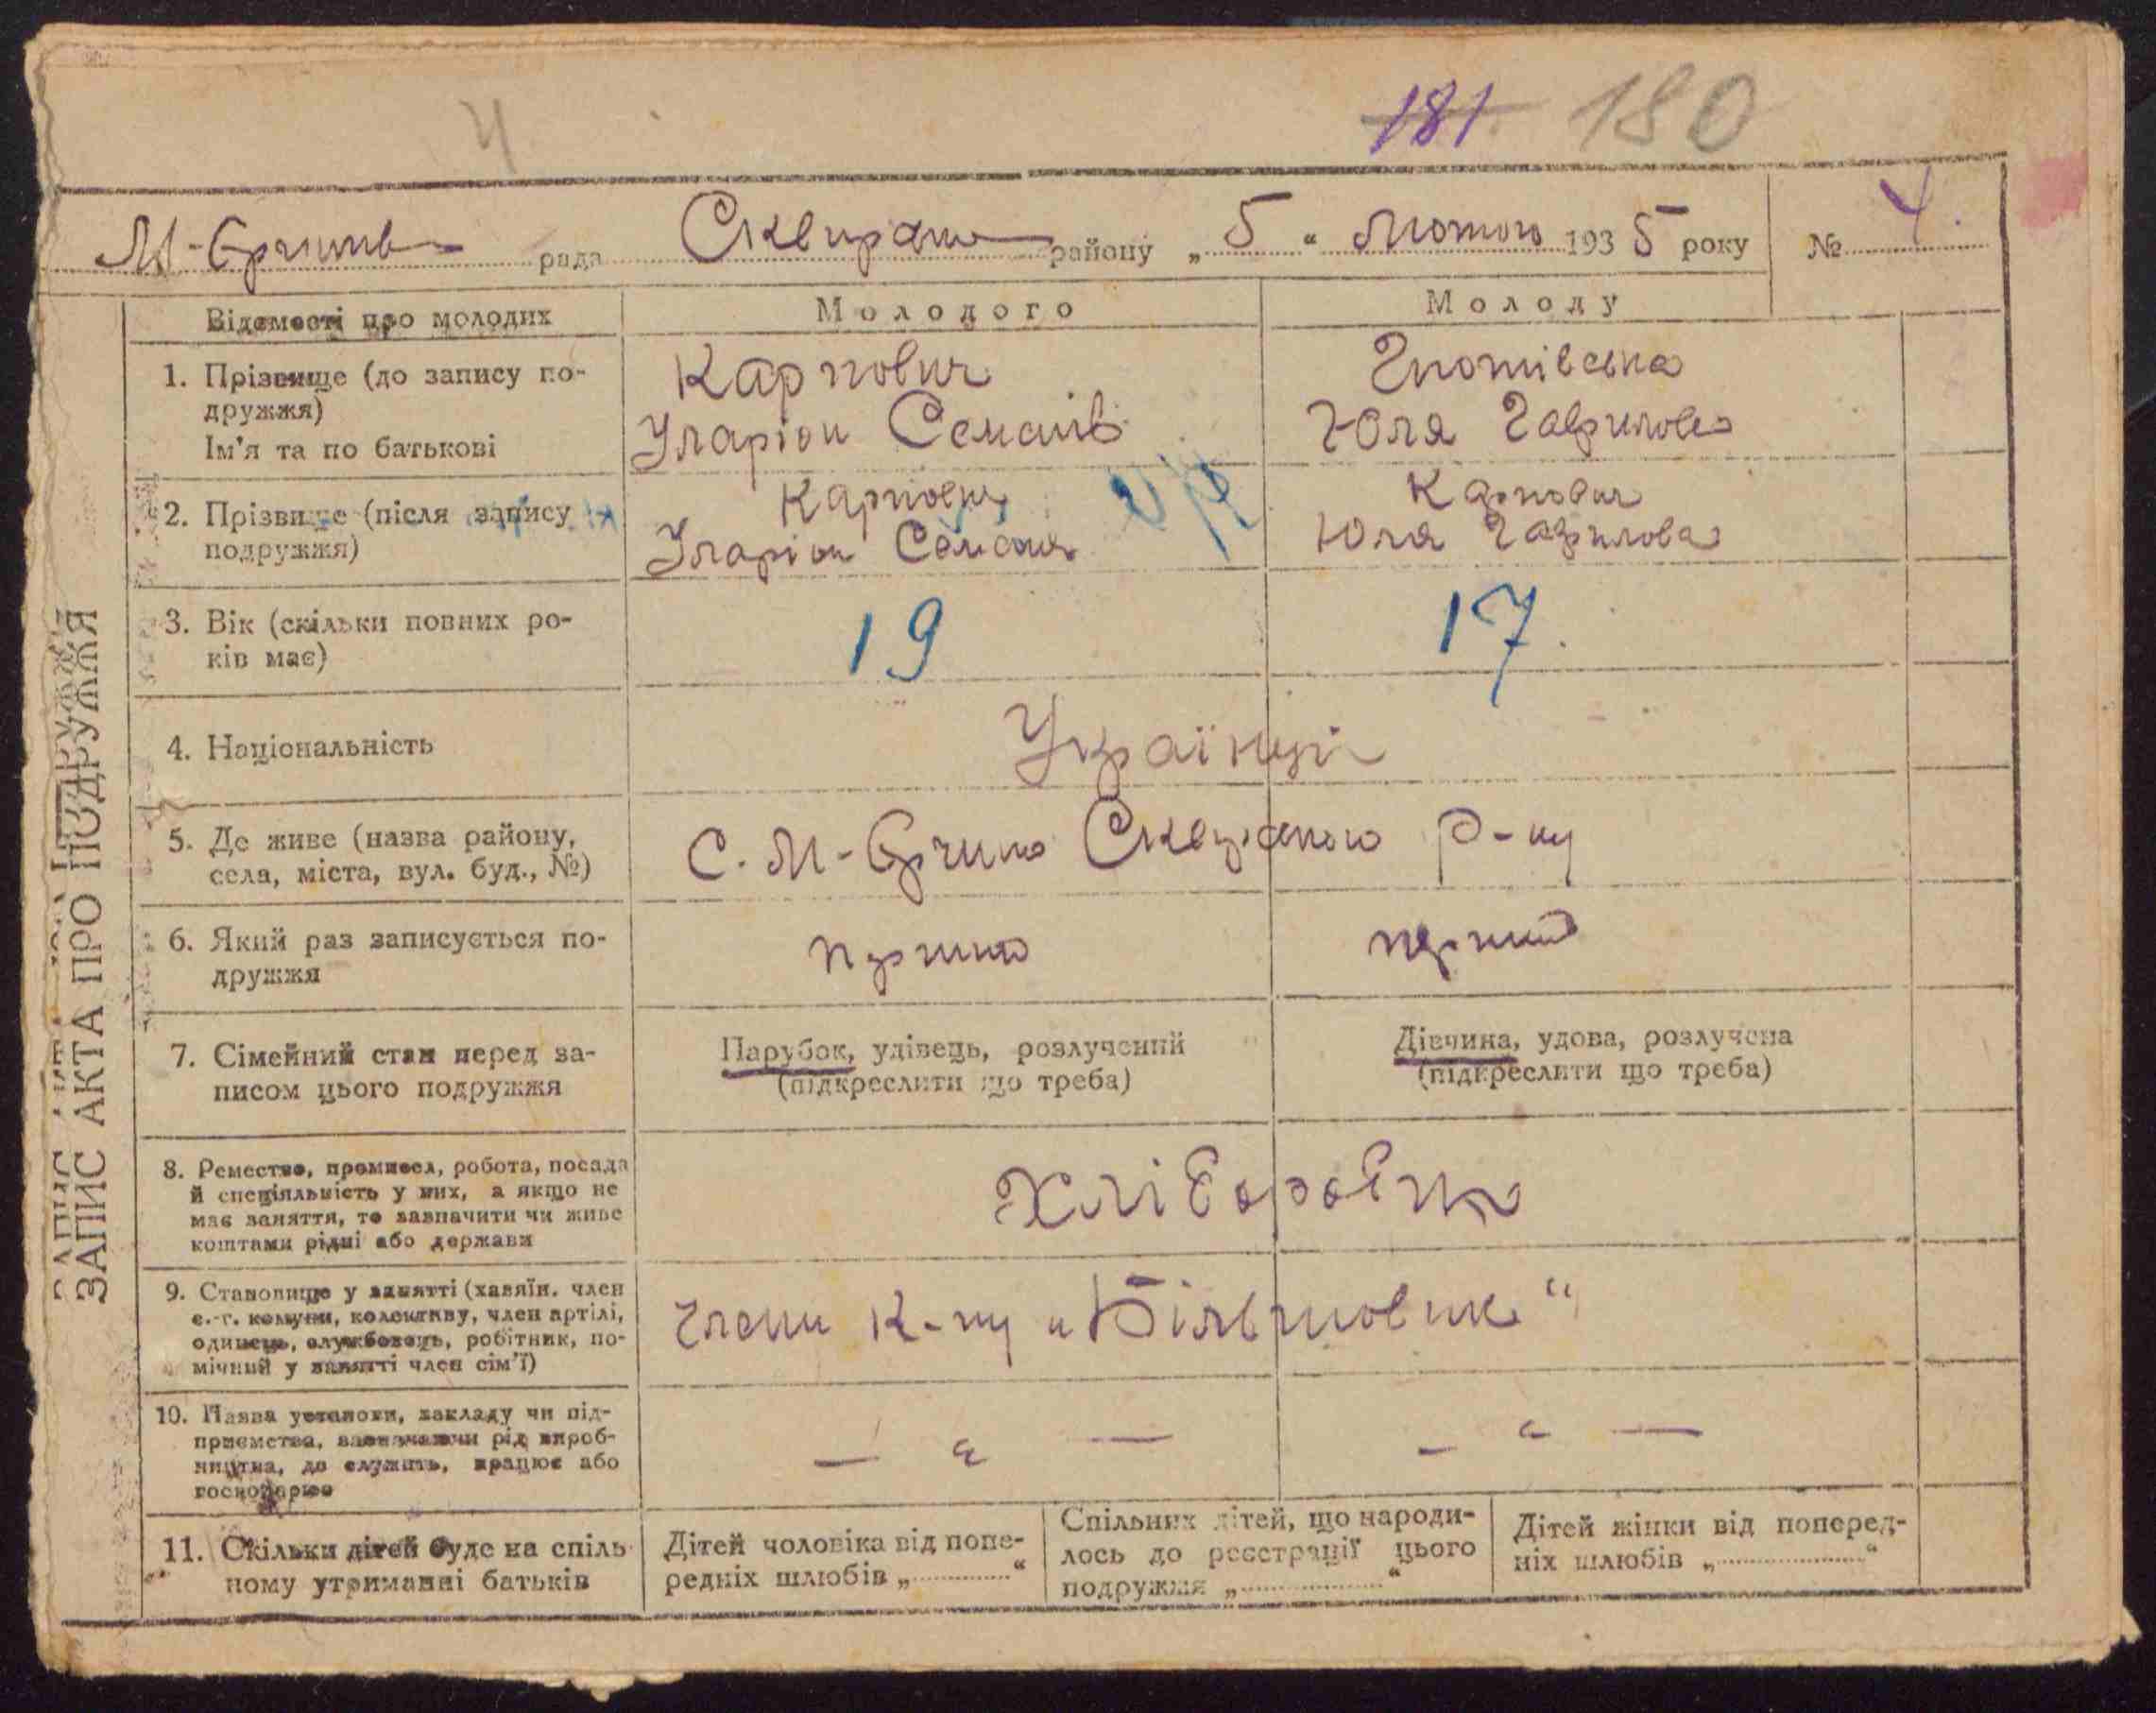 4
181 180
М-Єрчиків рада Сквирського району „ 5 “ Лютого 193 5 року № 4.
Відомості про молодих Молодого Молоду
1. Прізвище (до запису по-
дружжя)
Ім'я та по батькові
Карпович
Іларіон Семенів
Юля Гаврилова
2. Прізвище (після запису
подружжя)
Карпович
Іларіон Семенів
Карпович
Юля Гаврилова
3. Вік (скільки повних ро-
ків має)
19 17.
4. Національність
Українці
5. Де живе (назва району,
села, міста, вул. буд., №)
С. М-Єрчики Сквирського р-ну
6. Який раз записується по-
дружжя
перший перший
7. Сімейний стан перед за-
писом цього подружжя
Парубок, удівець, розлучений
(підкреслити що треба)
Дівчина, удова, розлучена
(підкреслити що треба)
8. Ремество, промисел, робота, посада
й спеціяльність у них, а якщо не
має заняття, то зазначити чи живе
коштами рідні або держави
Хлібороби
9. Становище у занятті (хазяїн. член
с.-г. комуни, колективу, член артілі,
одинець, службовець, робітник, по-
мічний у занятті член сім'ї)
Члени к-пу „Більшовик“
10. Назва установи, закладу чи під-
приємства, зазначаючи рід вироб-
ництва, де служить, працює або
господарює
— “ — — “ —
11. Скільки дітей буде на спіль
ному утриманні батьків
Дітей чоловіка від попе-
редніх шлюбів „ “
Спільних дітей, що народи-
лось до реєстрації цього
подружжя „ “
Дітей жінки від поперед-
ніх шлюбів „ “
ЗАПИС АКТА ПРО ПОДРУЖЖЯ